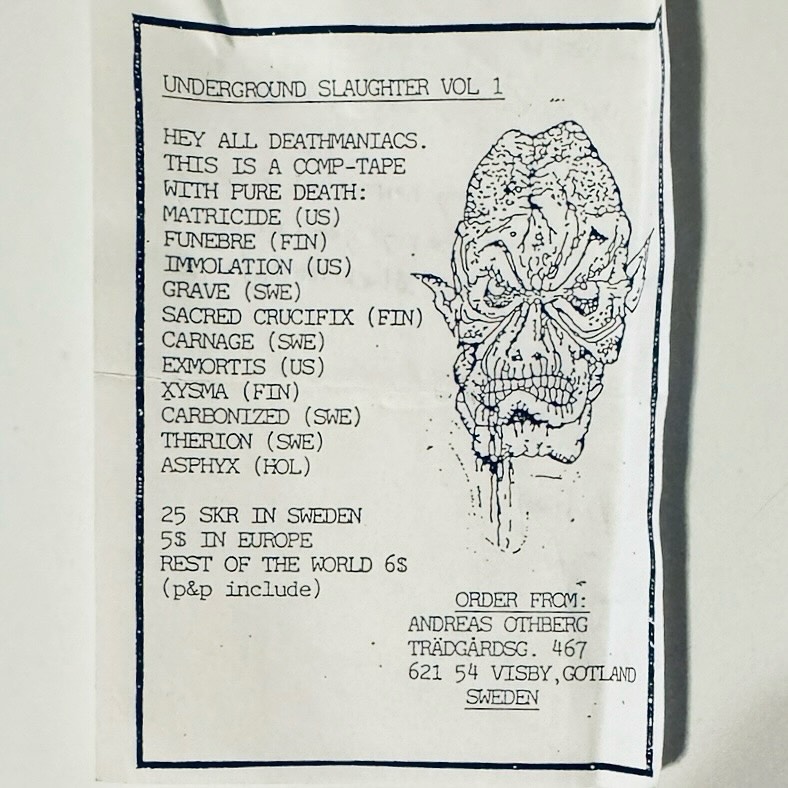 UNDERGROUND SLAUGHTER VOL 1
HEY ALL DEATHMANIACS.
THIS IS A COMP-TAPE
WITH PURE DEATH:
MATRICIDE (US)
FUNEBRE (FIN)
IMMOLATION (US)
GRAVE (SWE)
SACRED CRUCIFIX (FIN)
CARNAGE (SWE)
EXMORTIS (US)
XYSMA (FIN)
CARBONIZED (SWE)
THERION (SWE)
ASPHYX (HOL)
25 SKR IN SWEDEN
5$ IN EUROPE
REST OF THE WORLD 6$
(p&p include)
ORDER FROM:
ANDREAS OTHBERG
TRÄDGÅRDSG. 467
621 54 VISBY,GOTLAND
SWEDEN